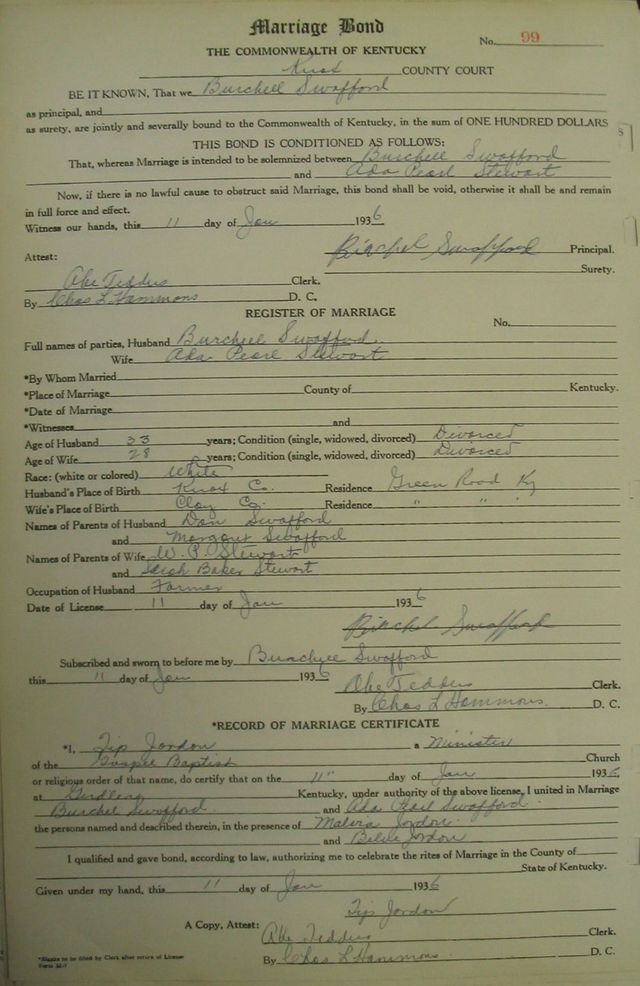 Marriage Bond
No. 99
THE COMMONWEALTH OF KENTUCKY
Knox COUNTY COURT
BE IT KNOWN, That we Burchell Swafford
as principal, and
as surety, are jointly and severally bound to the Commonwealth of Kentucky, in the sum of ONE HUNDRED DOLLARS
THIS BOND IS CONDITIONED AS FOLLOWS:
That, whereas Marriage is intended to be solemnized between Burchell Swafford
and Ada Pearl Stewart
Now, if there is no lawful cause to obstruct said Marriage, this bond shall be void, otherwise it shall be and remain
in full force and effect.
Witness our hands, this 11 day of Jan 1936
Birchel Swafford Principal.
Attest:
Surety.
Abe Teddus Clerk.
By Chas L Hammons D. C.
REGISTER OF MARRIAGE
No.
Full names of parties, Husband Burchell Swafford
Wife Ada Pearl Stewart
*By Whom Married
*Place of Marriage County of Kentucky.
*Date of Marriage
*Witnesses and
Age of Husband 33 years; Condition (single, widowed, divorced) Divorced
Age of Wife 28 years; Condition (single, widowed, divorced) Divorced
Race: (white or colored) White
Husband's Place of Birth Knox Co. Residence Green Road Ky
Wife's Place of Birth Clay Co. Residence " " "
Names of Parents of Husband Dan Swafford
and Margaret Swafford
Names of Parents of Wife W. P. Stewart
and Sarah Baker Stewart
Occupation of Husband Farmer
Date of License 11 day of Jan 1936
Birchel Swafford
Subscribed and sworn to before me by Burchell Swafford
this 11 day of Jan 1936
Abe Teddus Clerk.
By Chas L Hammons. D. C.
*RECORD OF MARRIAGE CERTIFICATE
*I, Tip Jordon a Minister
of the Gospel Baptist Church
or religious order of that name, do certify that on the 11" day of Jan 1936
at Kentucky, under authority of the above license, I united in Marriage
Burchel Swafford and Ada Pearl Swafford
the persons named and described therein, in the presence of Jordon
and Jordon
I qualified and gave bond, according to law, authorizing me to celebrate the rites of Marriage in the County of
State of Kentucky.
Given under my hand, this 11 day of Jan 1936
Tip Jordon
A Copy, Attest:
Abe Teddus Clerk.
By Chas L Hammons. D. C.
*Blanks to be filled by Clerk after return of License